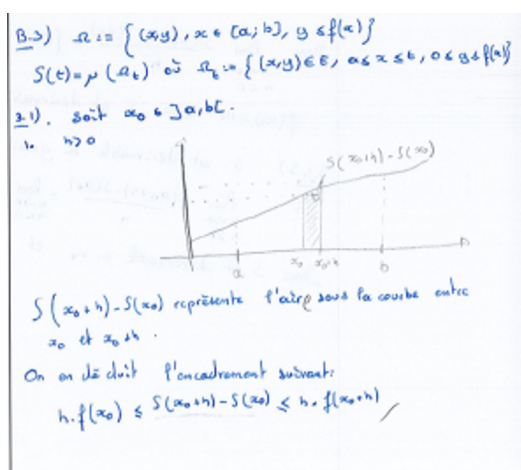 B.3) Ω := { (x,y), x ∈ [a;b], y ≤ f(x) }
S(t) = μ(Ω_t) où Ω_t := { (x,y) ∈ E, a ≤ x ≤ t, 0 ≤ y ≤ f(x) }
3.1). Soit x₀ ∈ ]a,b[.
1. h>0
S(x₀+h) - S(x₀)
a x₀ x₀+h b
S(x₀+h) - S(x₀) représente l'aire sous la courbe entre
x₀ et x₀+h.
On en déduit l'encadrement suivant:
h.f(x₀) ≤ S(x₀+h) - S(x₀) ≤ h.f(x₀+h)